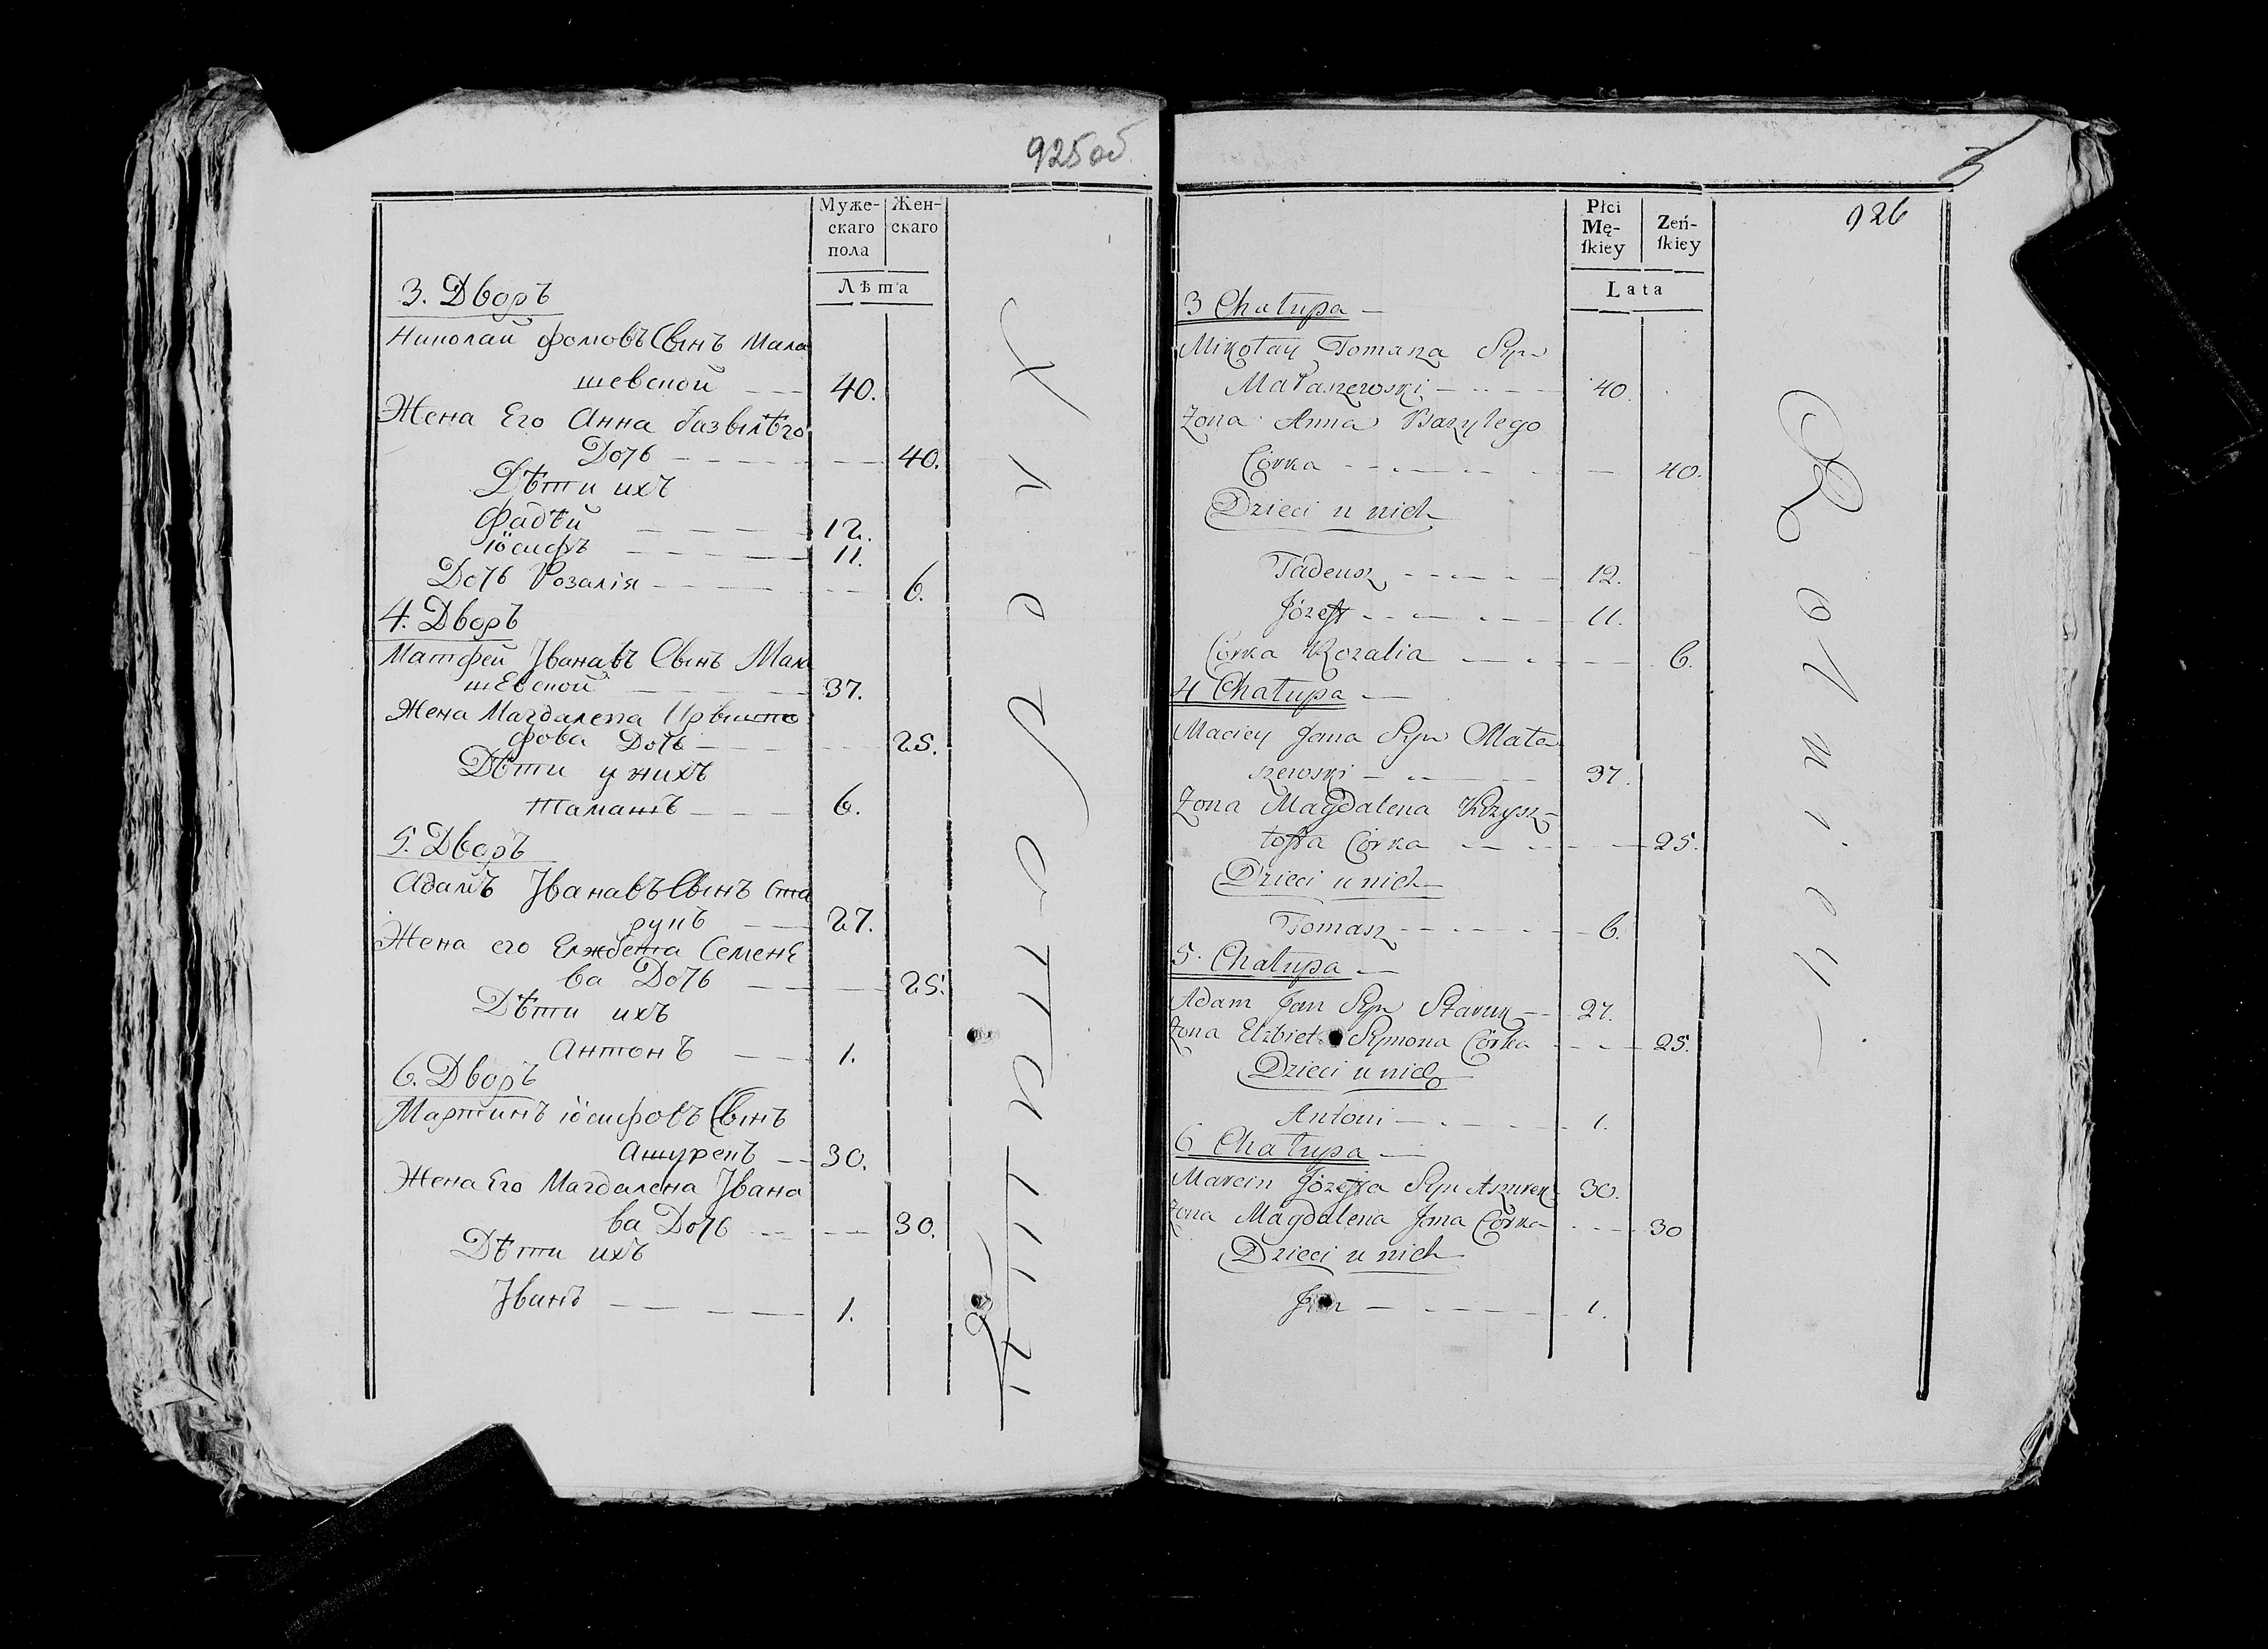 925об
Муже-
скаго
пола
Жен-
скаго
Лѣта
3. Дворъ
Николай Фомовъ Сынъ Мала
шевской 40.
Жена Его Анна базвілѣго
Дочь 40.
Дѣти ихъ
Фадѣй 12.
Іосифъ 11.
Дочь Розалія 6.
4. Дворъ
Матфей Іванавъ Сынъ Мала
шевской 37.
Жена Магдалена Крышто
фова Дочь 25.
Дѣти у нихъ
Тамашъ 6.
5. Дворъ
Адамъ Іванавъ Сынъ Ста
рунъ 27.
Жена его Елжбета Семене
ва Дочь 25.
Дѣти ихъ
Антонъ 1.
6. Дворъ
Мартинъ Іосифовъ Сынъ
Ашурекъ 30.
Жена Его Магдалена Івана
ва Дочь 30.
Дѣти ихъ
Іванъ 1.
3
926
Płci
Mę-
ſkiey
Zeń-
ſkiey
Lata
3 Chałupa
Mikołay Tomasza Syn
Małaszewski 40.
Zona Anna Bazylego
Córka 40.
Dzieci u nich
Tadeusz 12.
Józeff 11.
Córka Rozalia 6.
4 Chałupa
Maciey Jana Syn Mała
szewski 37.
Zona Magdalena Krzysz-
toffa Córka 25.
Dzieci u nich
Tomasz 6.
5. Chałupa
Adam Jan Syn Starun 27.
Zona Elzbiet Symona Córka 25.
Dzieci u nich
Antoni 1.
6 Chałupa
Marcin Józeffa Syn Aszurek 30.
Zona Magdalena Jana Córka 30
Dzieci u nich
Jan 1.
Rolniey